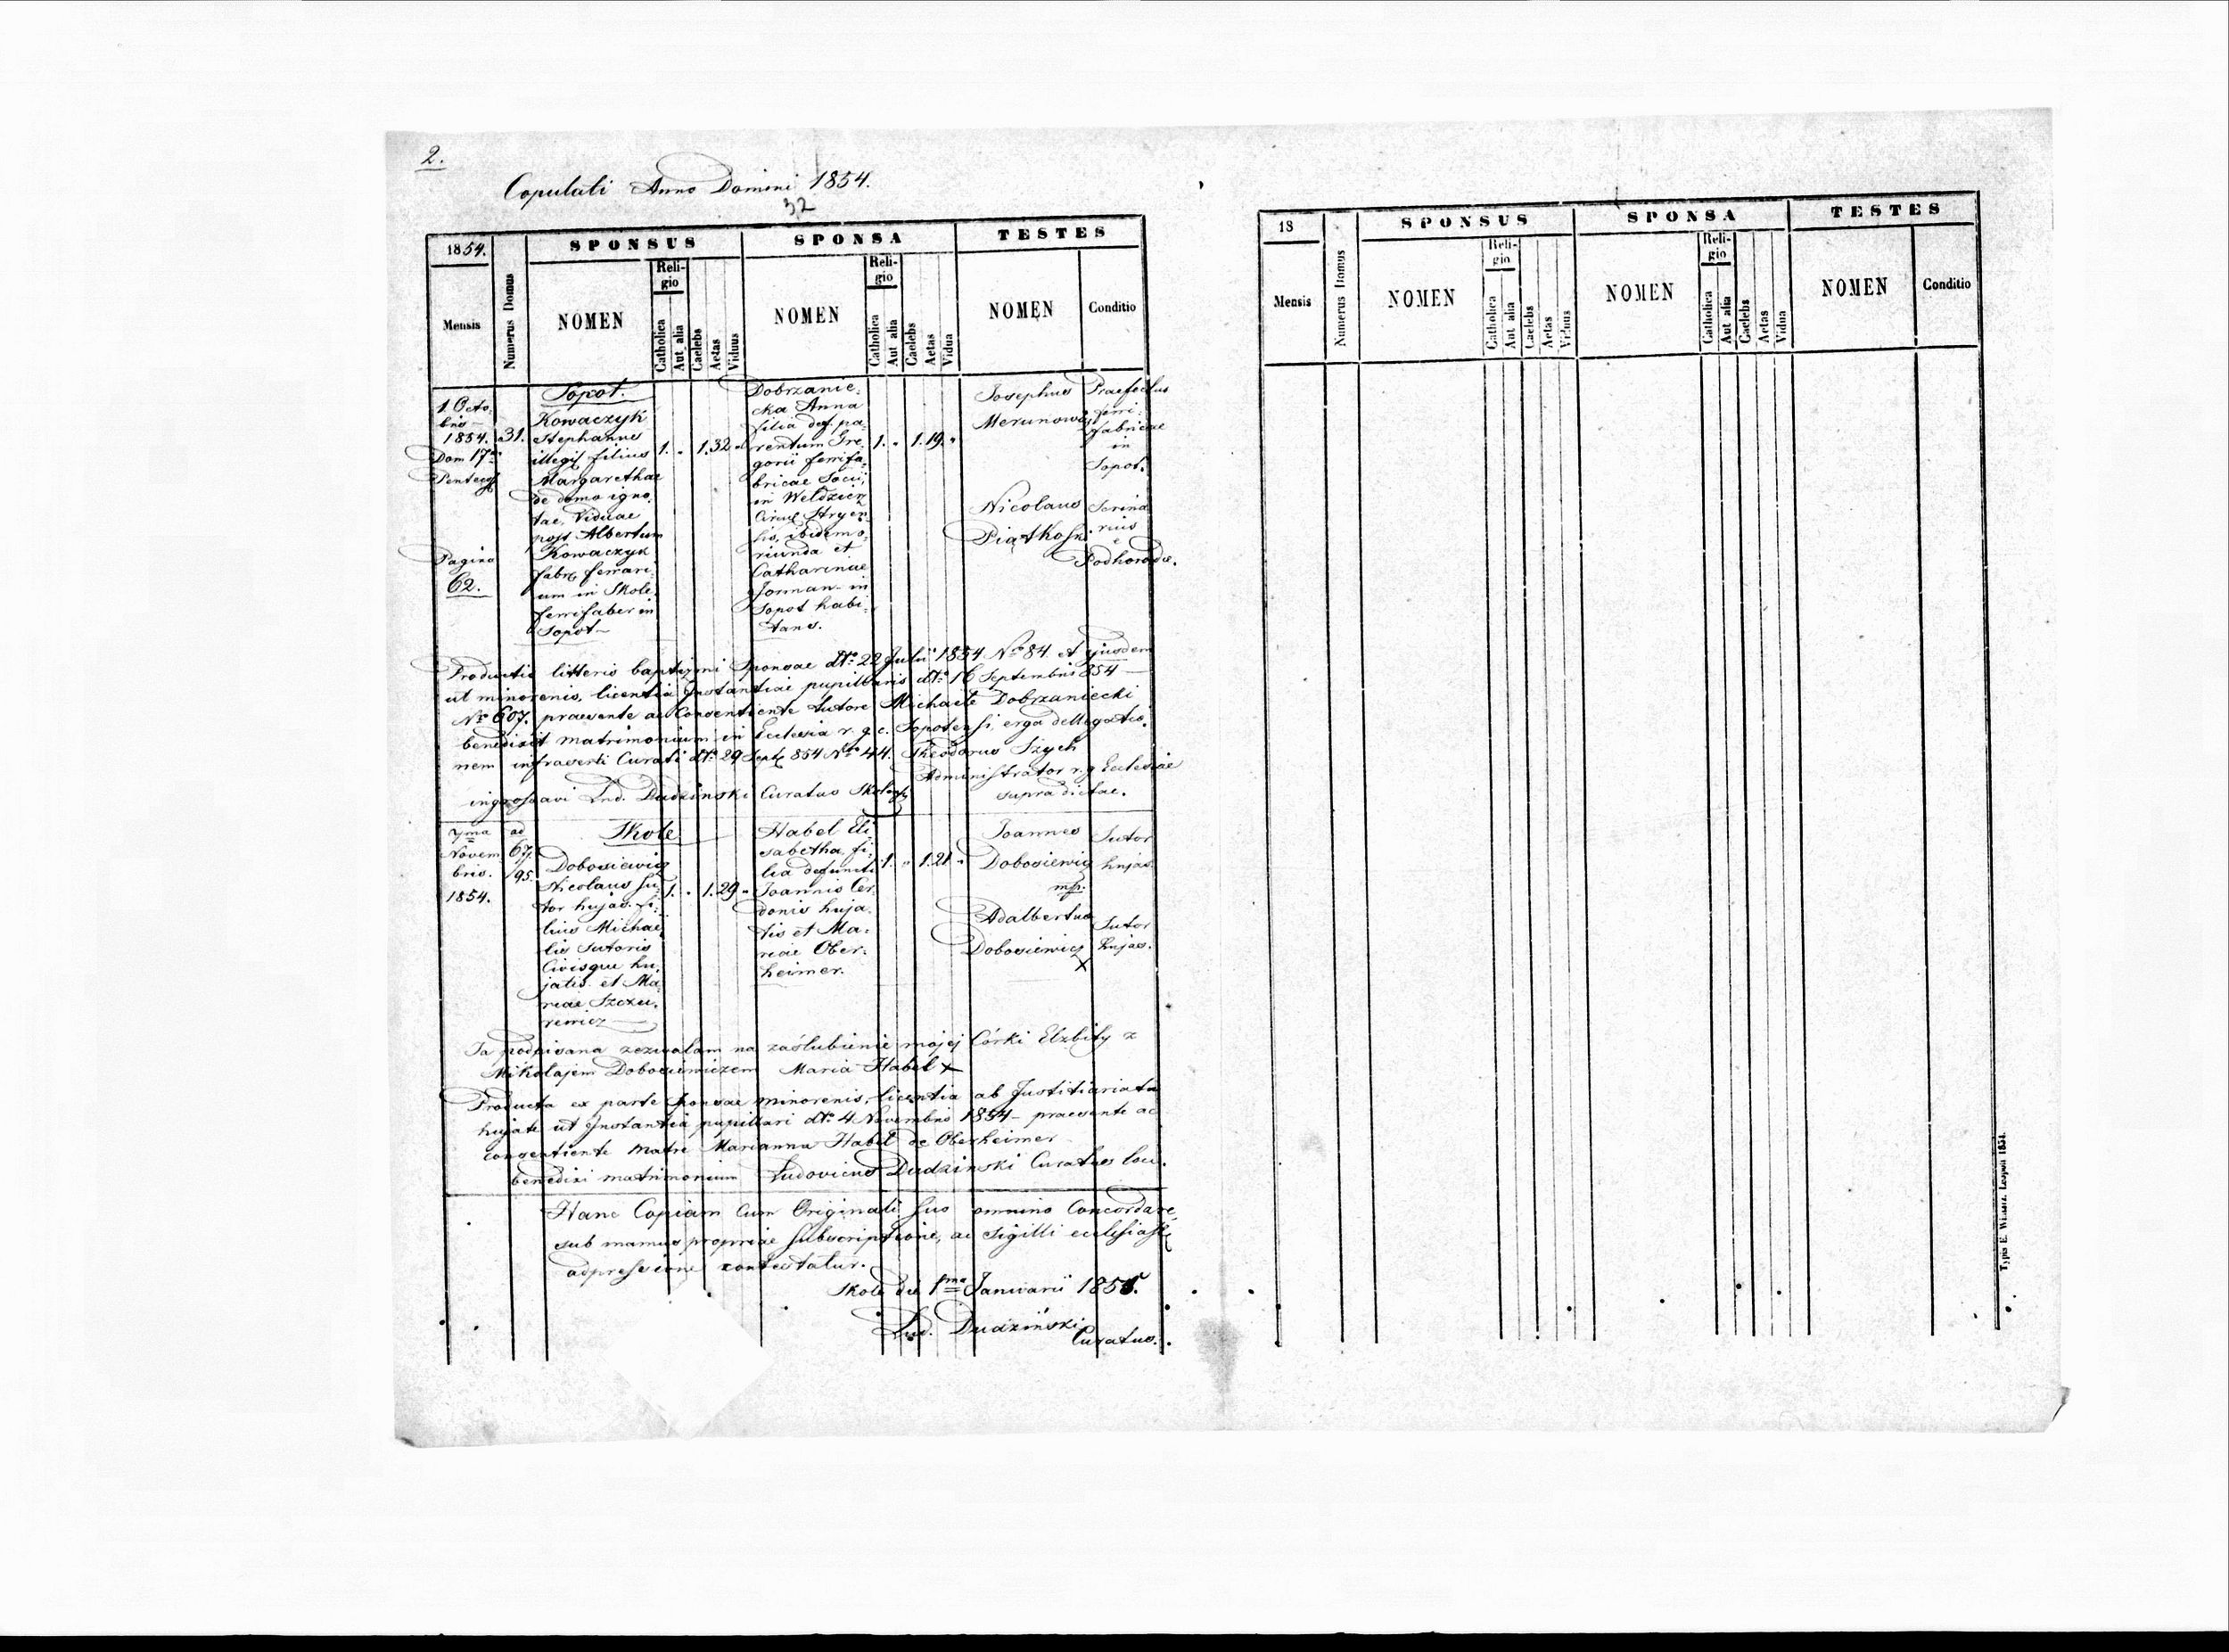 2.
Copulati Anno Domini 1854.
32
1854.
Mensis
Numerus Domus
SPONSUS
NOMEN
Reli-
gio
Catholica
Aut alia
Caelebs
Aetas
Viduus
SPONSA
NOMEN
Reli-
gio
Catholica
Aut alia
Caelebs
Aetas
Vidua
TESTES
NOMEN
Conditio
1. Octo-
bris
1854.
Dom 17a
Pentecos
Pagina
62.
31.
Sopot.
Kowaczyk
Stephanus
illegit filius
Margarethae
de domo igno
tae, Viduae
post Albertum
Kowaczyk
fabr ferrari
um in Skole
ferrifaber in
Sopot
1. " 1. 32 "
Dobrzanie-
cka Anna
filia def pa-
rentum Gre
gorii ferrifa-
bricae Socii,
in Weldzicz
Circul Stryen-
sis, ibidem o-
riunda et
Catharinae
Jonnan in
Sopot habi-
tans.
1. " 1. 19. "
Josephus
Merunowicz
Praefectus
ferri-
fabricae
in
Sopot.
Nicolaus
Piątkoski
Scrina
rius
e
Podhorodce.
Productis litteris baptismi Sponsae dto 22 Julii 1854 No 84. et ejusdem
ut minorenis, licentia Instantiae pupillaris dto 16 Septembris 854
No 607. praesente ac Consentiente tutore Michaele Dobrzaniecki
benedixit matrimonium in Ecclesia r. g. c. Sopotensi, erga dellegatio-
nem infrascripti Curati dto 29 Sept 854 No 44. Theodorus Szych
Administrator r. g Ecclesiae
supra dictae.
ingrossavi Lud. Dudzinski Curatus Skolens
7ma
Novem
bris.
1854.
ad
67.
95.
Skole
Dobosiewicz
Nicolaus Su-
tor hujas. fi-
lius Michae
lis Sutoris
Civisque hu-
jatis. et Ma
riae Szczu-
rewicz
1. " 1. 29 "
Habel Eli-
sabetha, fi-
lia defuncti
Joannis Cer
donis huja-
tis et Ma-
riae Ober-
heimer.
1. " 1. 21. "
Joannes
Dobosiewicz
mp.
Sutor
hujas.
Adalbertus
Dobosiewicz
X
Sutor
hujas.
Ja podpisana zezwalam na zaślubienie mojej Córki Elzbity z
Mikołajem Dobosiewiczem Maria Habel X
Producta ex parte Sponsae minorenis, licentia ab Justitiariatu
hujate ut Instantia pupillari dto 4 Novembris 1854 praesente ac
consentiente matre Marianna Habel de Oberheimer
benedixi matrimonium Ludovicus Dudzinski Curatus loci.
Hanc Copiam cum Originali suo omnino Concordare,
sub manus propriae subscriptione, ac sigilli ecclesiast
adpressione contestatur.
Skole die 1ma Januarii 1855.
Lud. Dudziński
Curatus.
18
Mensis
Numerus Domus
SPONSUS
NOMEN
Reli-
gio
Catholica
Aut alia
Caelebs
Aetas
Viduus
SPONSA
NOMEN
Reli-
gio
Catholica
Aut alia
Caelebs
Aetas
Vidua
TESTES
NOMEN
Conditio
Typis E. Winiarz. Leopoli 1854.